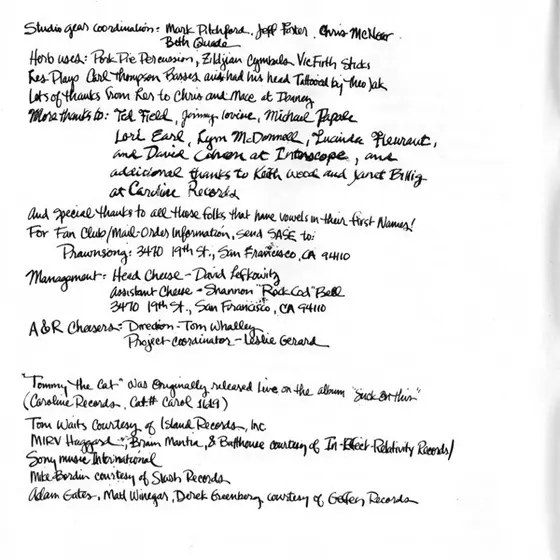 Studio gear coordination: Mark Pitchford, Jeff Porter, Chris McNeer
Beth Quade
Herb uses: Pork Pie Percussion, Zildjian Cymbals Vic Firth Sticks
Les Plays Carl Thompson Basses and had his head Tattooed by Theo Jak
Lots of thanks from Les to Chris and Mace at
More thanks to: Ted Field, Jimmy Iovine, Michael Papale
Lori Earl, Rym McDonnell, Lucinda Fleurant,
and David Cohen at Interscope, and
additional thanks to Keith Wood and Janet Billig
at Caroline Records
And special thanks to all those folks that have vowels in their first Names!
For Fan Club/Mail-Order Information, send SASE to:
Prawnsong: 3470 19th St., San Francisco, CA 94110
Management: Head Cheese - David Lefkowitz
Assistant Cheese - Shannon "Rock Cod" Bell
3470 19th St., San Francisco, CA 94110
A&R Cheasers: Direction - Tom Whalley
Project-coordinator - Leslie Gerard
"Tommy the Cat" was originally released live on the album "Suck on this"
(Caroline Records, Cat.# Carol 1619)
Tom Waits Courtesy of Island Records, Inc.
MIRV Haggard, Brain Mantia, & Buthouse courtesy of In-Effect-Relativity Records/
Sony music International
Mike Bordin courtesy of Slash Records
Adam Gates, Matt Winegar, Derek Greenberg, courtesy of Geffen Records